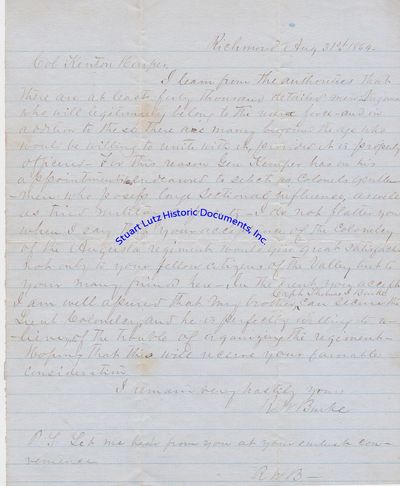 Richmond Aug 31st 1864.
Col Kenton Harper,
I learn from the authorities that
there are at least forty thousand detailed men in
who will legitimately belong to the force and in
addition to these there are many beyond the age who
would be willing to unite with us, provided it is properly
officered - For this reason Gen Kemper has in his
appointments endeavored to select as Colonels gentle-
men who possess large sectional influence as well
as tried I do not flatter you
when I say that your acceptance of the Colonelcy
of the Augusta regiment would give great satisfaction
not only to your fellow citizens of the Valley but to
your many friends here - In the event you accept
I am well assured that my brother, Capt Thomas J Burke can secure the
Lieut Colonelcy, and he is perfectly willing to re-
lieve of the trouble of organizing the regiment -
Hoping that this will receive your favorable
consideration
I remain very hastily yours
R W Burke
P.S. Let me hear from you at your earliest con-
venience
R W B -
Stuart Lutz Historic Documents, Inc.